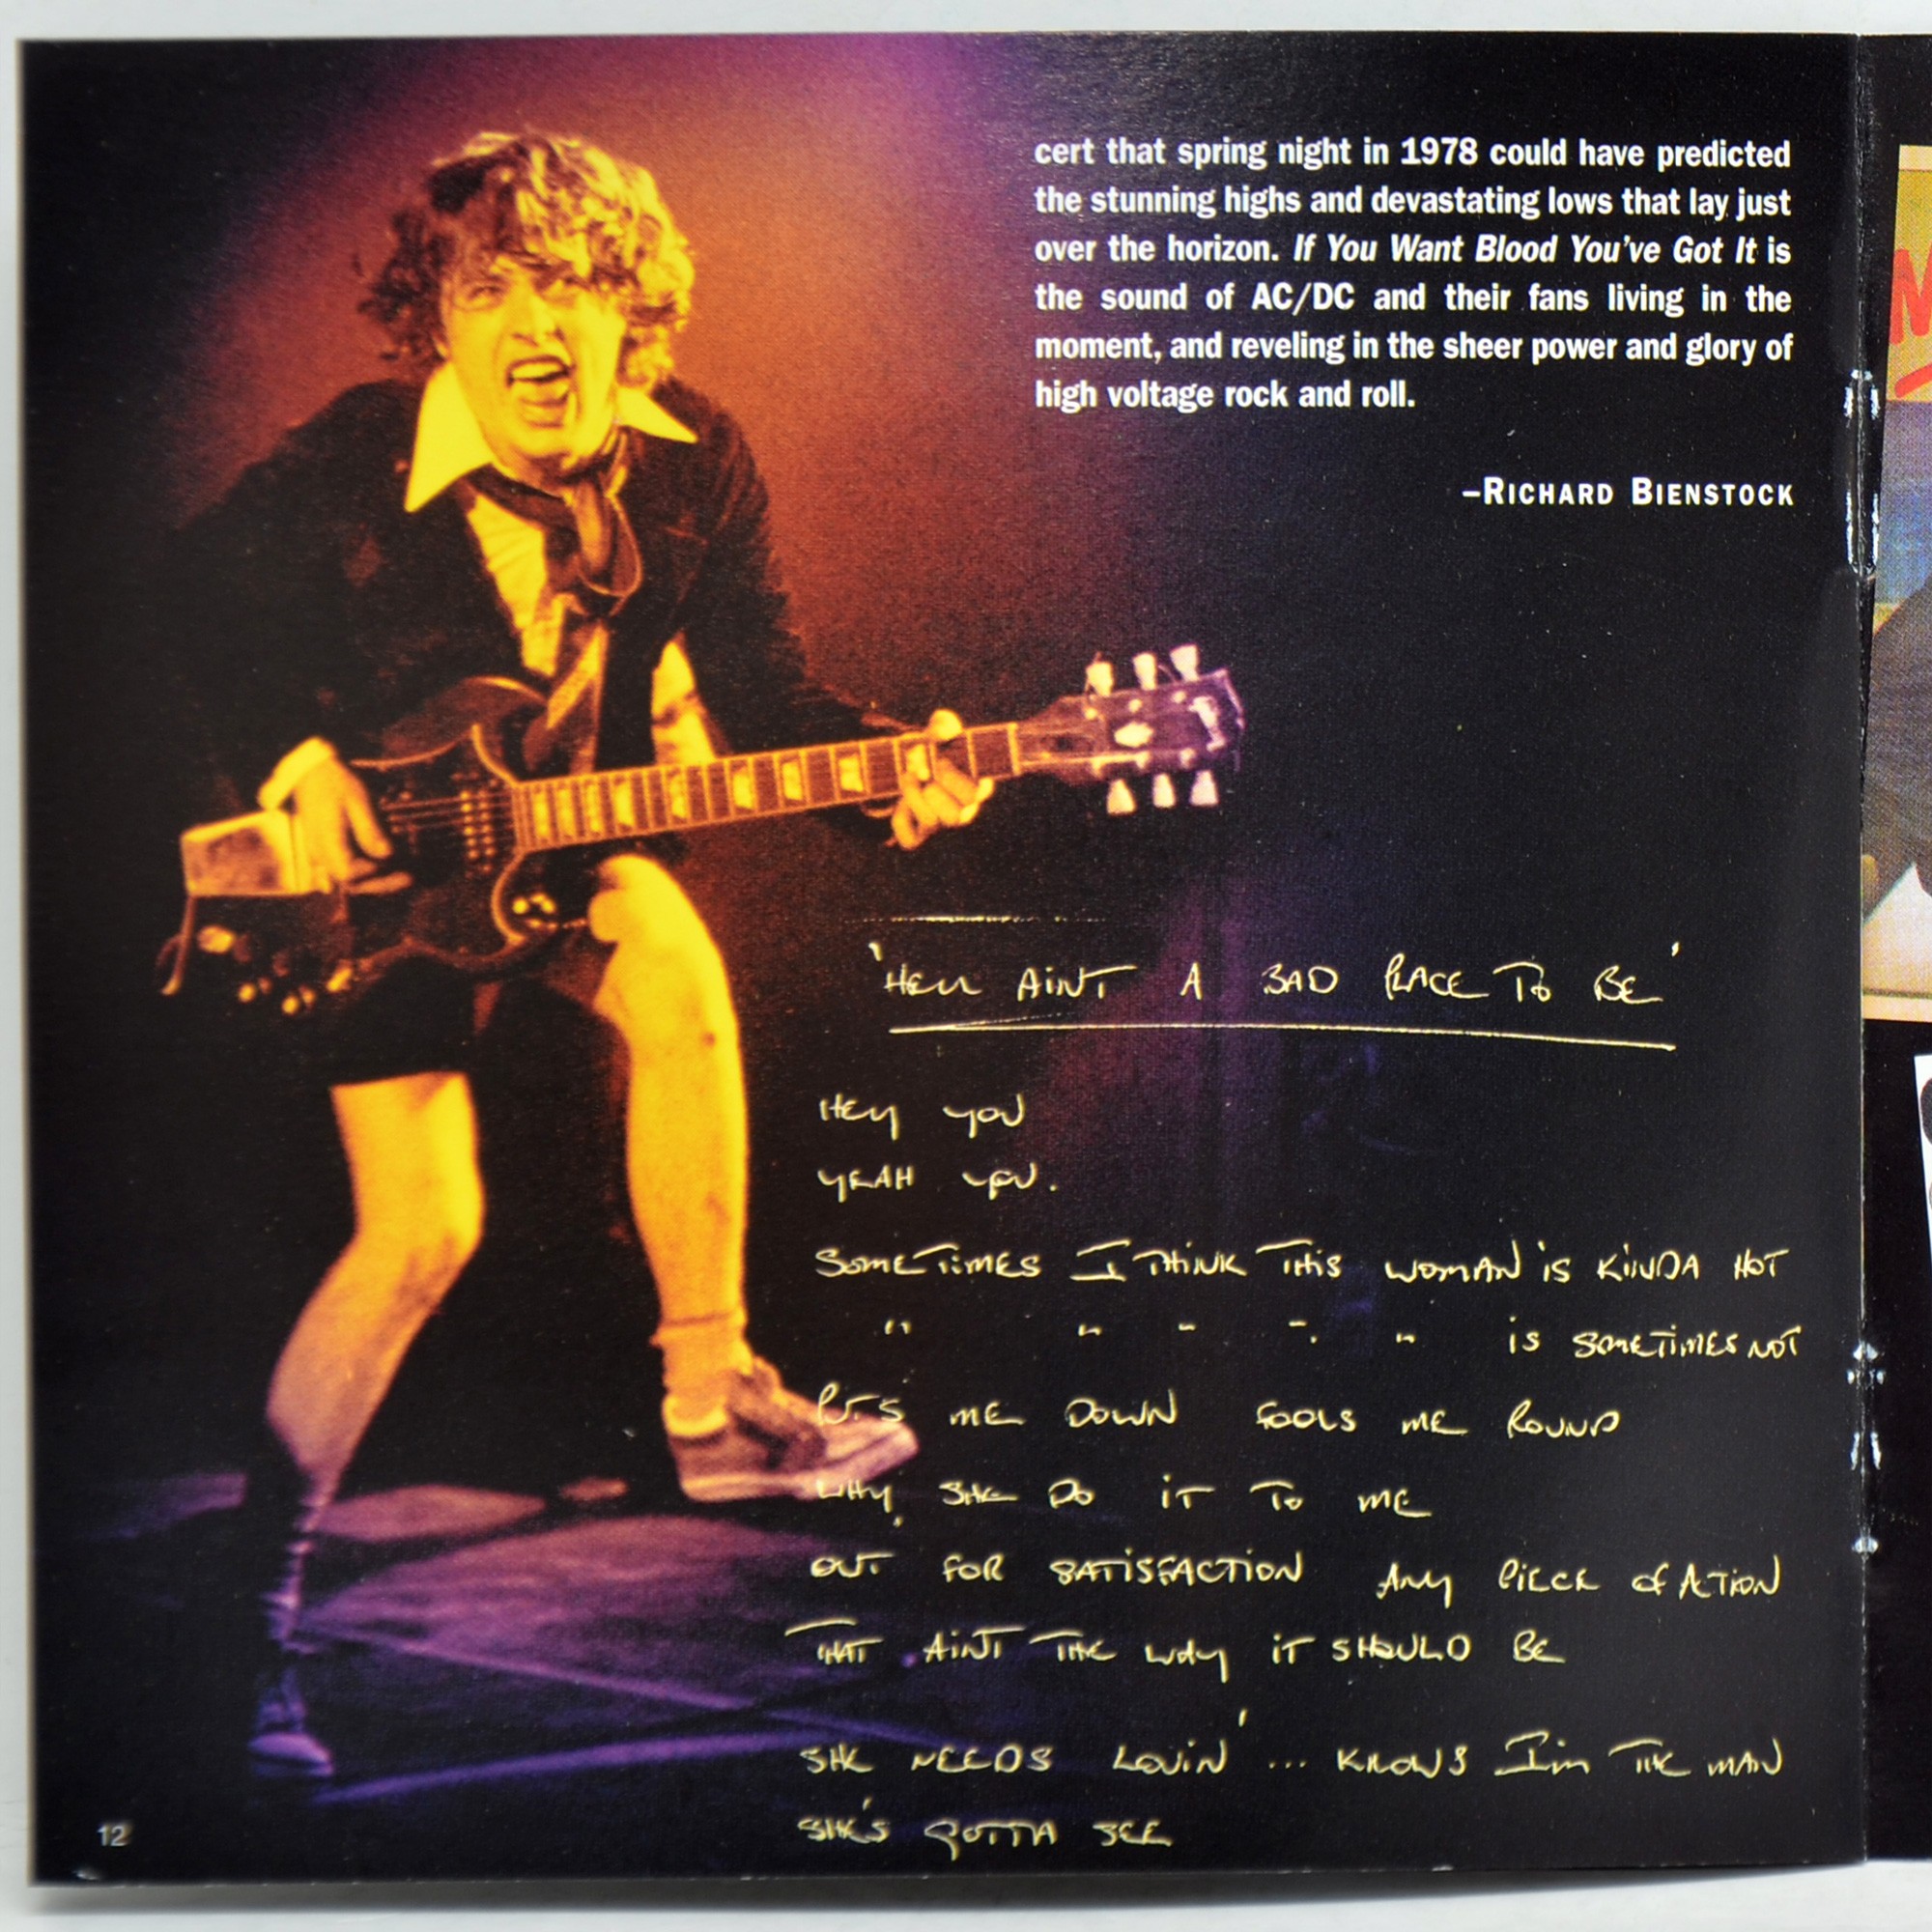 cert that spring night in 1978 could have predicted
the stunning highs and devastating lows that lay just
over the horizon. If You Want Blood You've Got It is
the sound of AC/DC and their fans living in the
moment, and reveling in the sheer power and glory of
high voltage rock and roll.
–RICHARD BIENSTOCK
'HELL AINT A BAD PLACE TO BE'
HEY YOU
YEAH YOU.
SOMETIMES I THINK THIS WOMAN IS KINDA HOT
" " " " " IS SOMETIMES NOT
PUTS ME DOWN FOOLS ME ROUND
WHY SHE DO IT TO ME
OUT FOR SATISFACTION ANY PIECE OF ACTION
THAT AINT THE WAY IT SHOULD BE
SHE NEEDS LOVIN' ... KNOWS I'm THE MAN
SHE'S GOTTA SEE
12